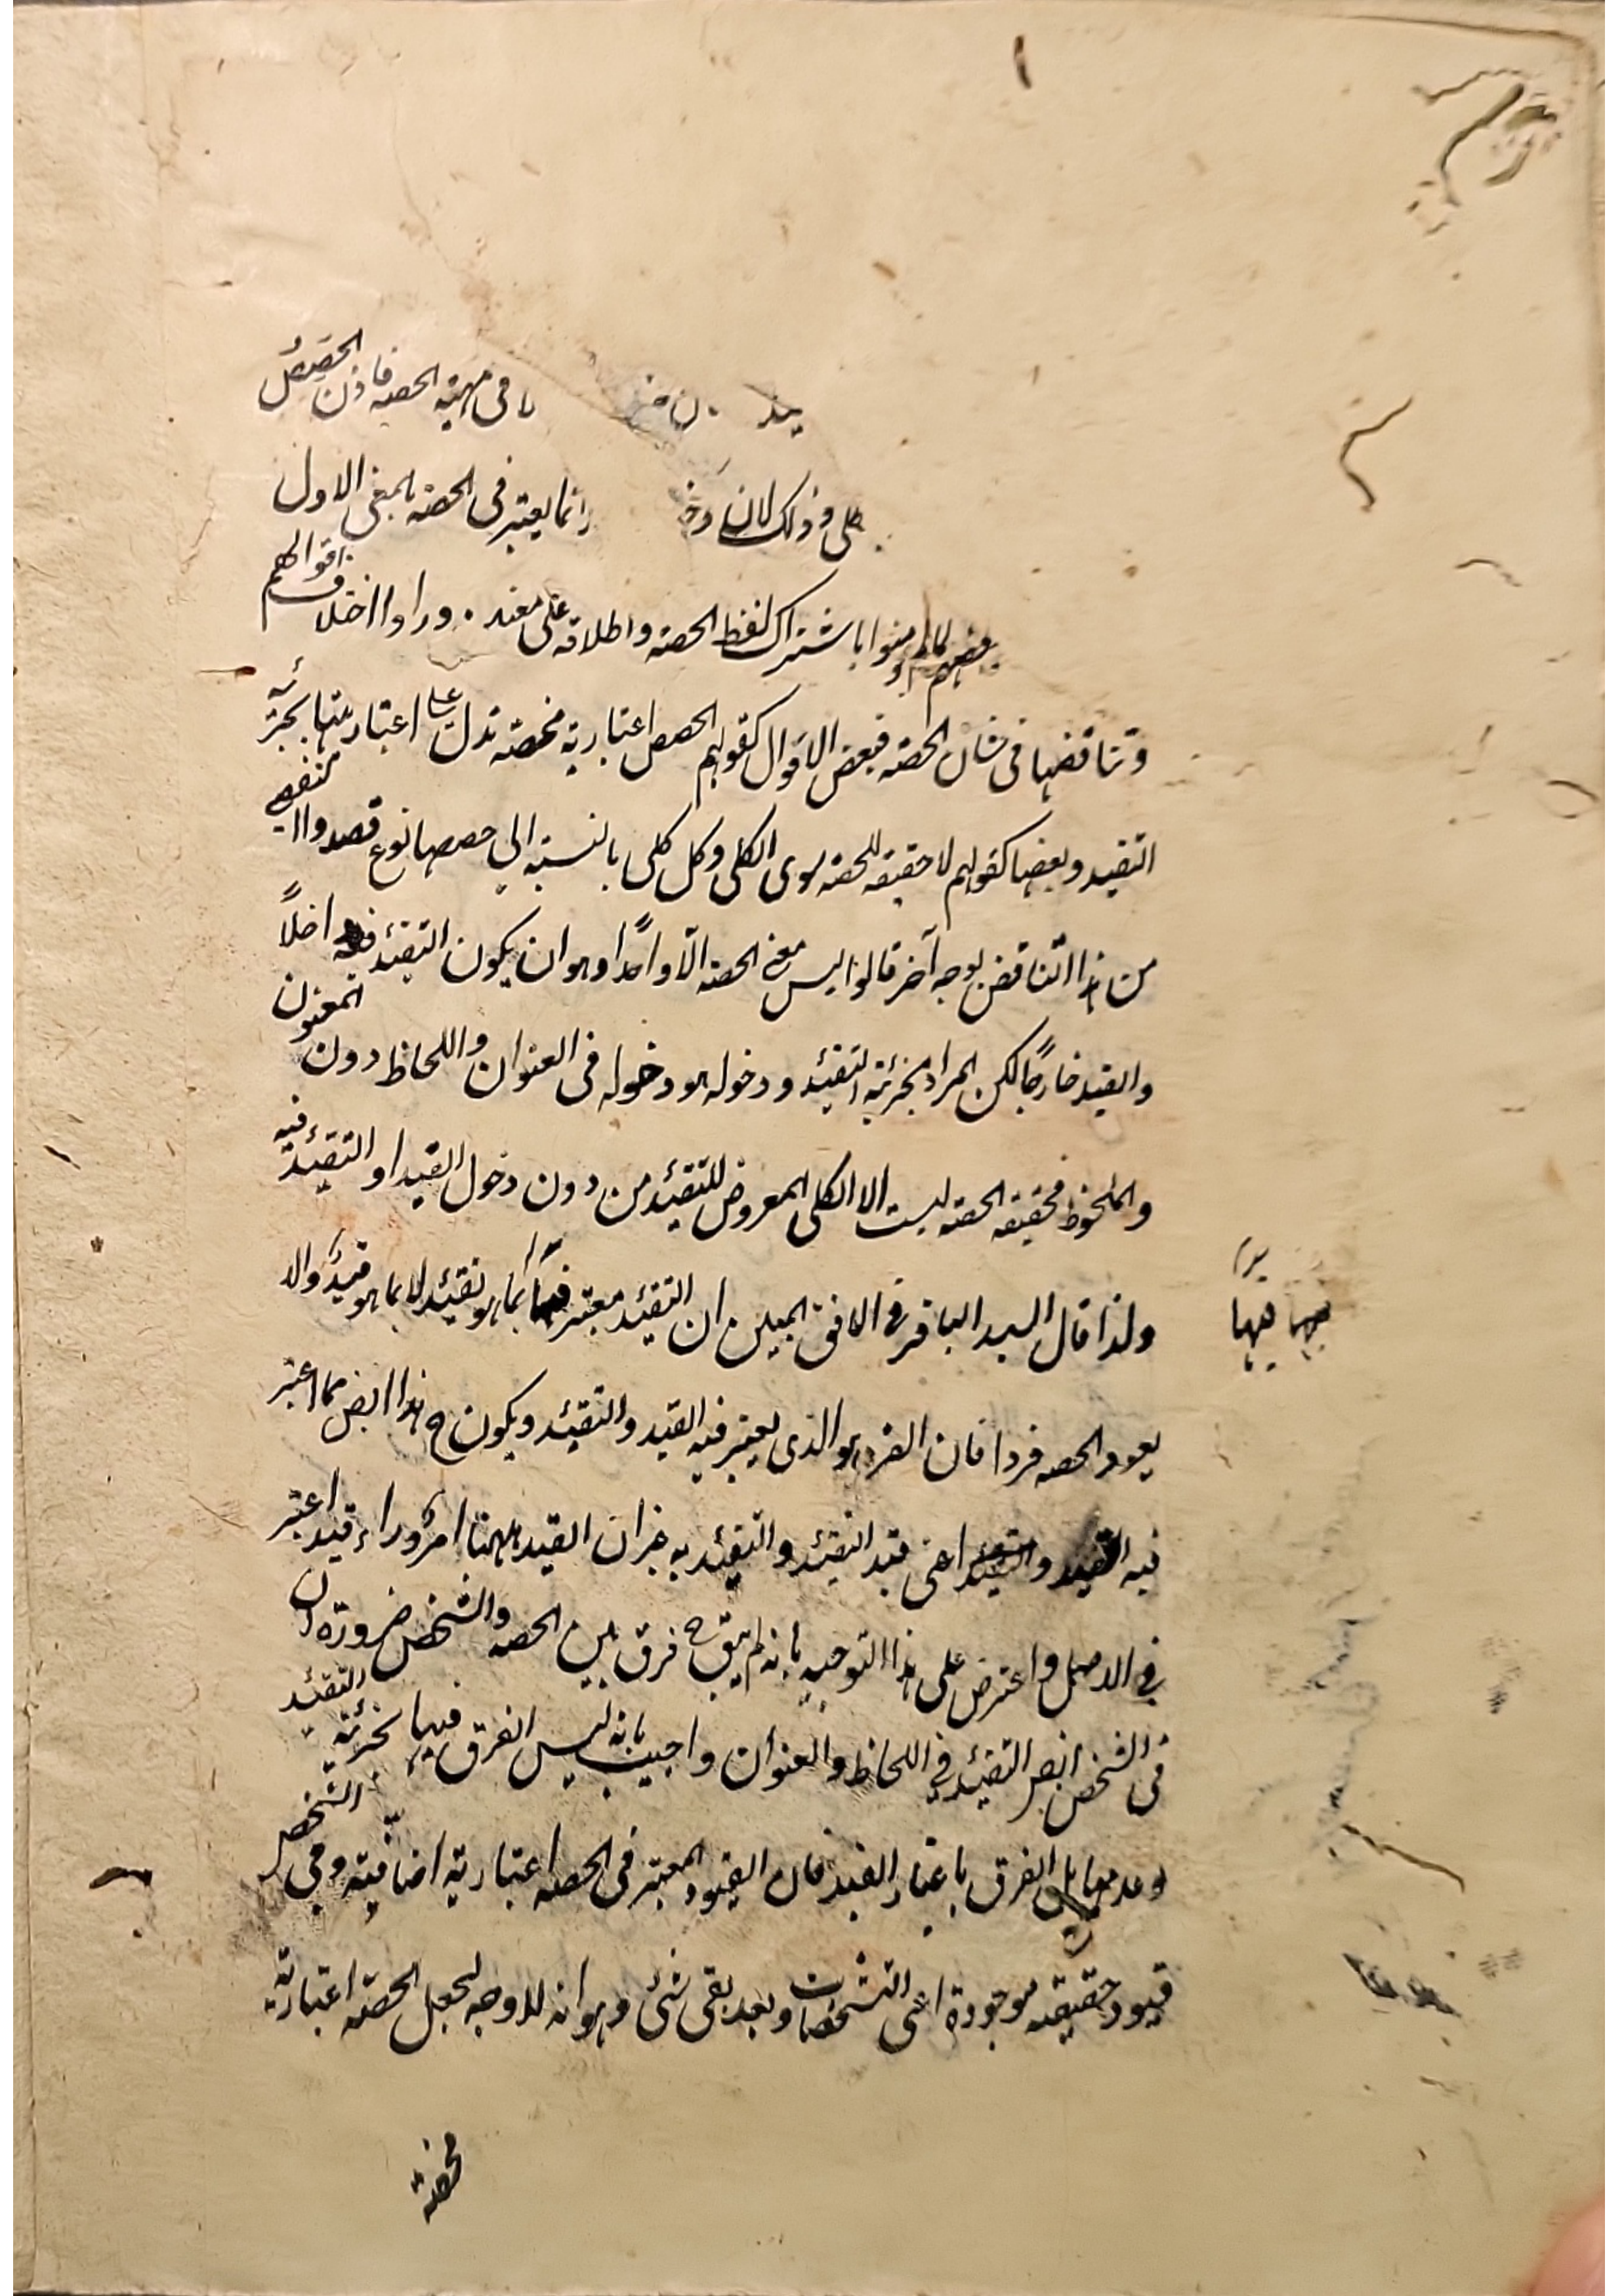 فى مهية الحصه فاذن الحصص
كلى و ذلك لان انما يعتبر فى الحصة بالمعنى الاول
باشتراك لفظ الحصه و اطلاقه على معنيه وراوا اختلاف اقوالهم
و تناقضها فى شان الحصة فبعض الاقوال كقولهم الحصص اعتبارية محضة تدل على اعتباريتها بجزئية
التقييد و بعضها كقولهم لا حقيقه للحصة سوى الكلى و كل كلى بالنسبة الى حصصها نوع قصدوا
من هذا التناقض بوجه آخر قالوا ليس معنى الحصة الا واحدًا و هو ان يكون التقئيد داخلاً
و القيد خارجًا لكن المراد بجزئية التقئيد و دخوله هو دخوله فى العنوان و اللحاظ دون المعنون
و الملحوظ فحقيقه الحصه ليست الا الكلى المعروض للتقئيد من دون دخول القيد او التقئيد فيه
و لذا قال السيد الباقر فى الافق المبين ان التقئيد معتبر فيها بما هو تقئيد لا بما هو قيد و الا
يعود الحصه فردا فان الفرد هو الذى يعتبر فيه القيد و التقئيد و يكون ح هذا ايض مما اعتبر
فيه القيد و التقئيد اعنى قيد التقئيد و التقئيد به غير ان القيد ههنا امر وراء قيد اعتبر
فى الاصل و اعترض على هذا التوجيه بانه لم يبق ح فرق بين الحصه و الشخص ضرورة ان
فى الشخص ايض التقئيد فى اللحاظ و العنوان و اجيب بانه ليس الفرق فيهما بجزئية التقئيد
و عدمها بل الفرق باعتبار القيد فان القيود المعتبر فى الحصه اعتبارية اضافية و فى الشخص
قيود حقيقيه موجودة اعنى التشخصات و بعد بقى شئ و هو انه لا وجه لجعل الحصة اعتبارية
محضة